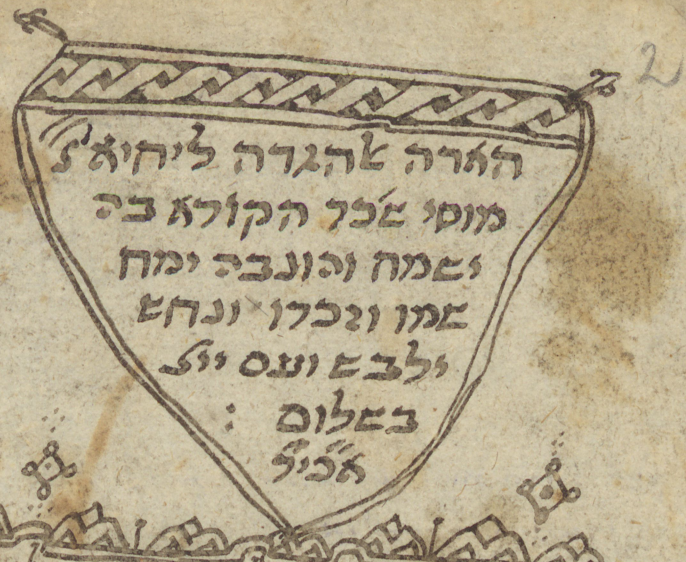 2
הזרה אהגדה ליחיאל
מוסי שכל הקורא בה
ישמח והגונבה ימח
שמו וזכרו ונחש
ילבש ועם ייצ
בשלום :
אכי״ר